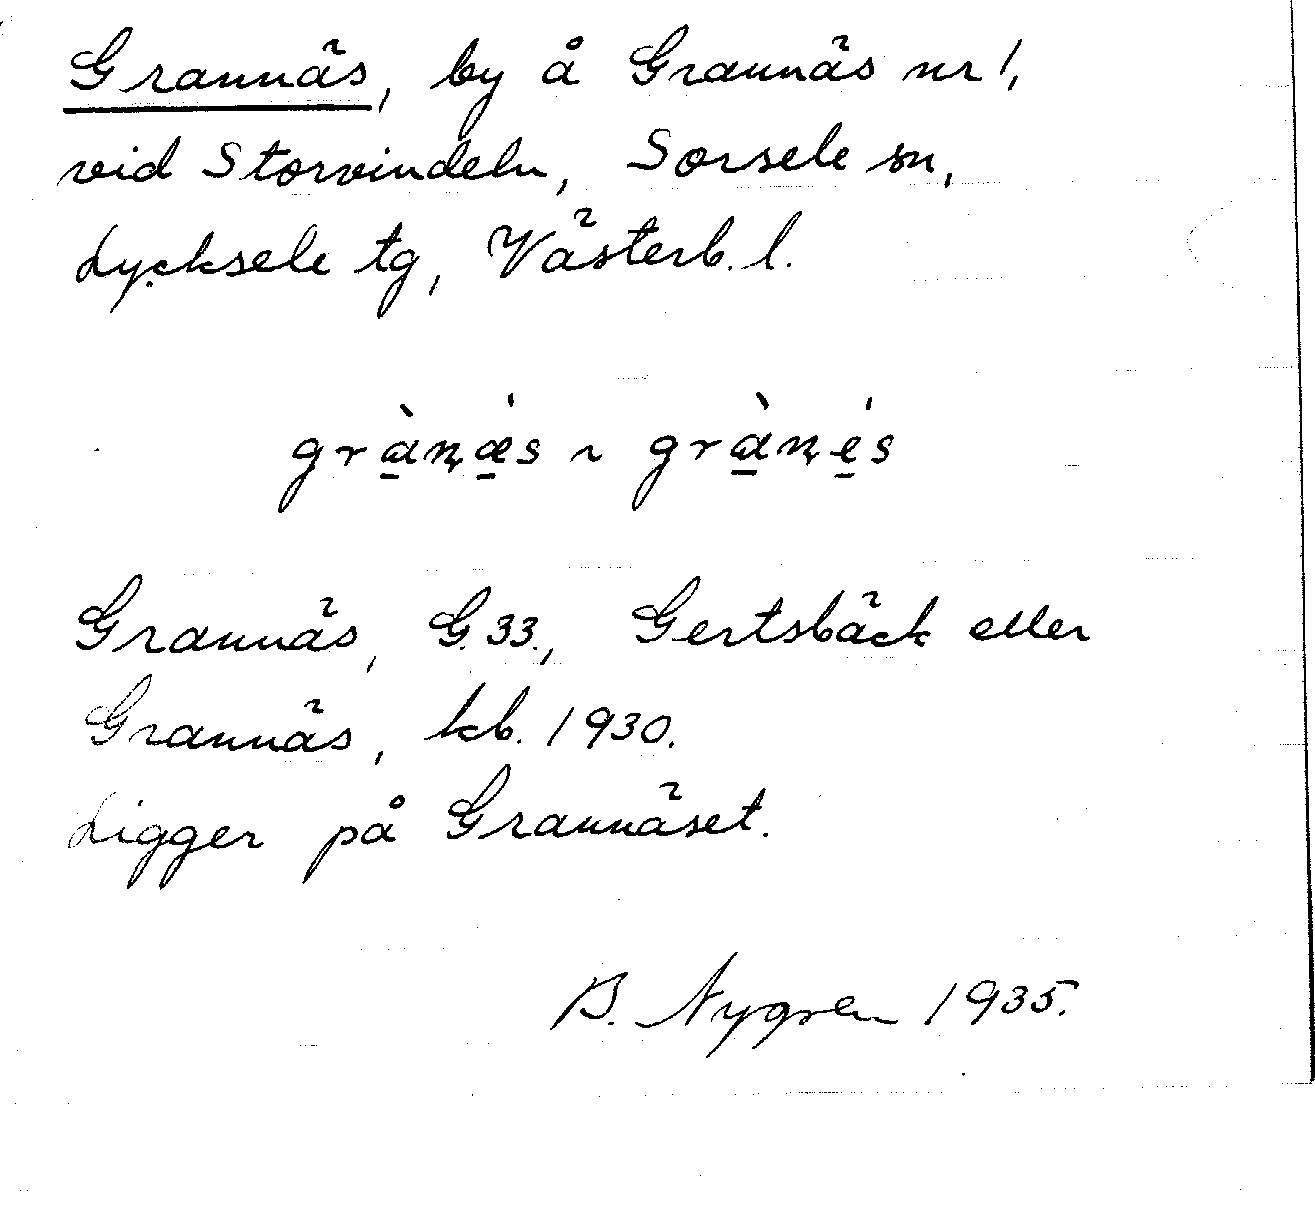 Grannäs, by å Grannäs nr 1,
vid Storvindeln, Sorsele sn,
Lycksele tg, Västerb. l.
gràn̥æ̀́s ~ gràn̥és
Grannäs, G.33., Gertsbäck eller
Grannäs, kb. 1930.
Ligger på Grannäset.
B. Nygren 1935.